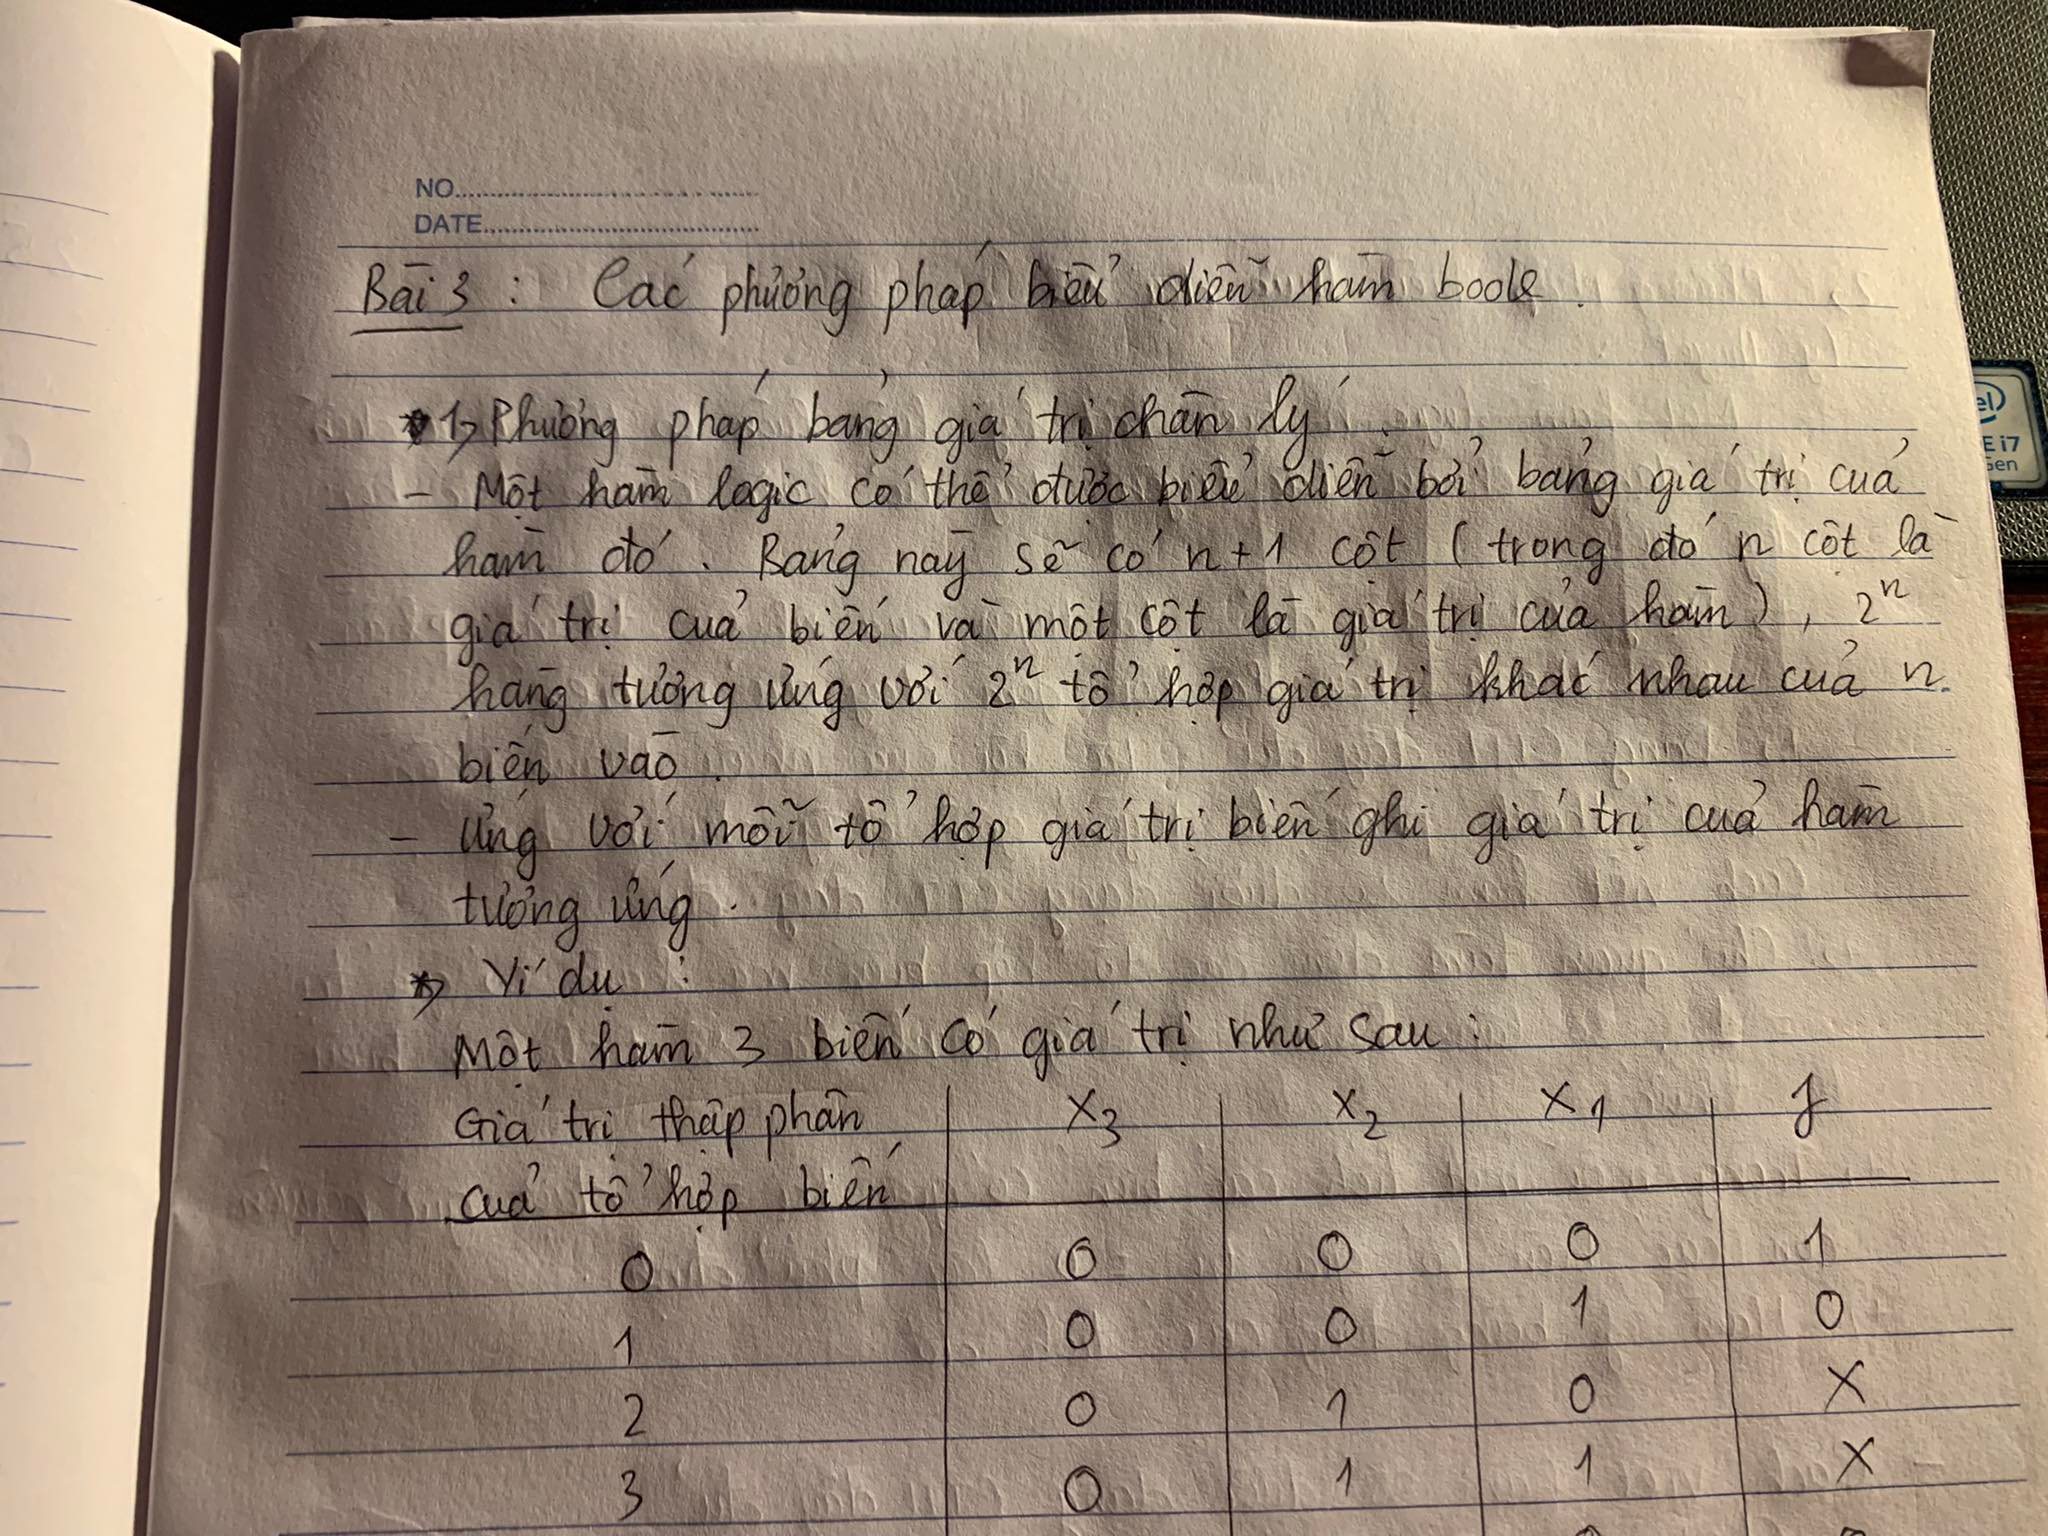 NO
DATE
Bài 3 : Các phương pháp biểu diễn hàm boole.
1, Phương pháp bảng giá trị chân lý
- Một hàm logic có thể được biểu diễn bởi bảng giá trị của
hàm đó. Bảng này sẽ có n+1 cột (trong đó n cột là
giá trị của biến và một cột là giá trị của hàm), 2ⁿ
hàng tương ứng với 2ⁿ tổ hợp giá trị khác nhau của n
biến vào.
- Ứng với mỗi tổ hợp giá trị biến ghi giá trị của hàm
tương ứng.
* Ví dụ :
Một hàm 3 biến có giá trị như sau :
Giá trị thập phân x₃ x₂ x₁ f
của tổ hợp biến
0 0 0 0 1
1 0 0 1 0
2 0 1 0 X
3 0 1 1 X
i7